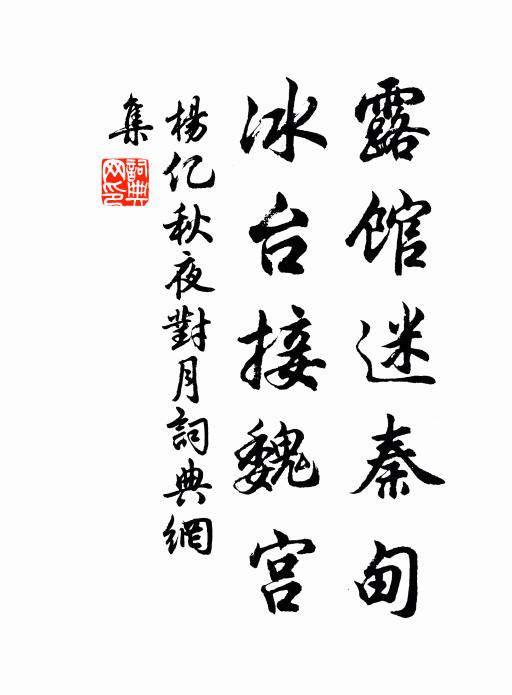 露馆迷秦甸
冰台接魏宫
楊亿秋夜對月詞典網
集
詞典網印